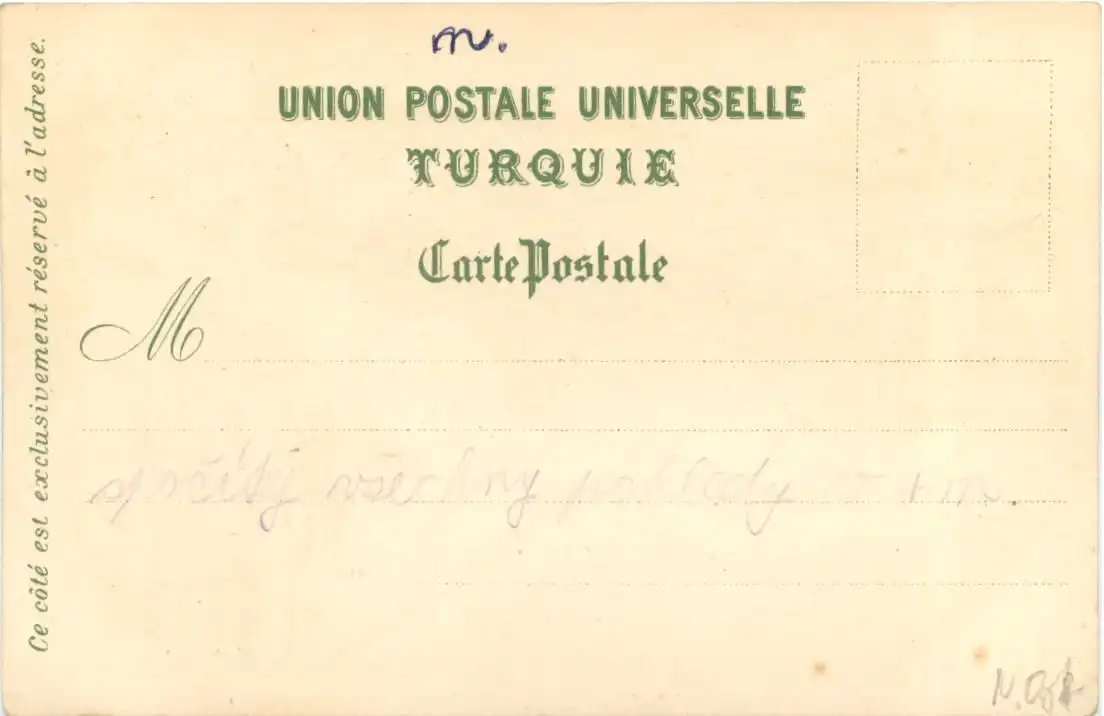 m.
UNION POSTALE UNIVERSELLE
TURQUIE
Carte Postale
M
všechny pohledy
+ m.
Ce côté est exclusivement réservé à l'adresse.